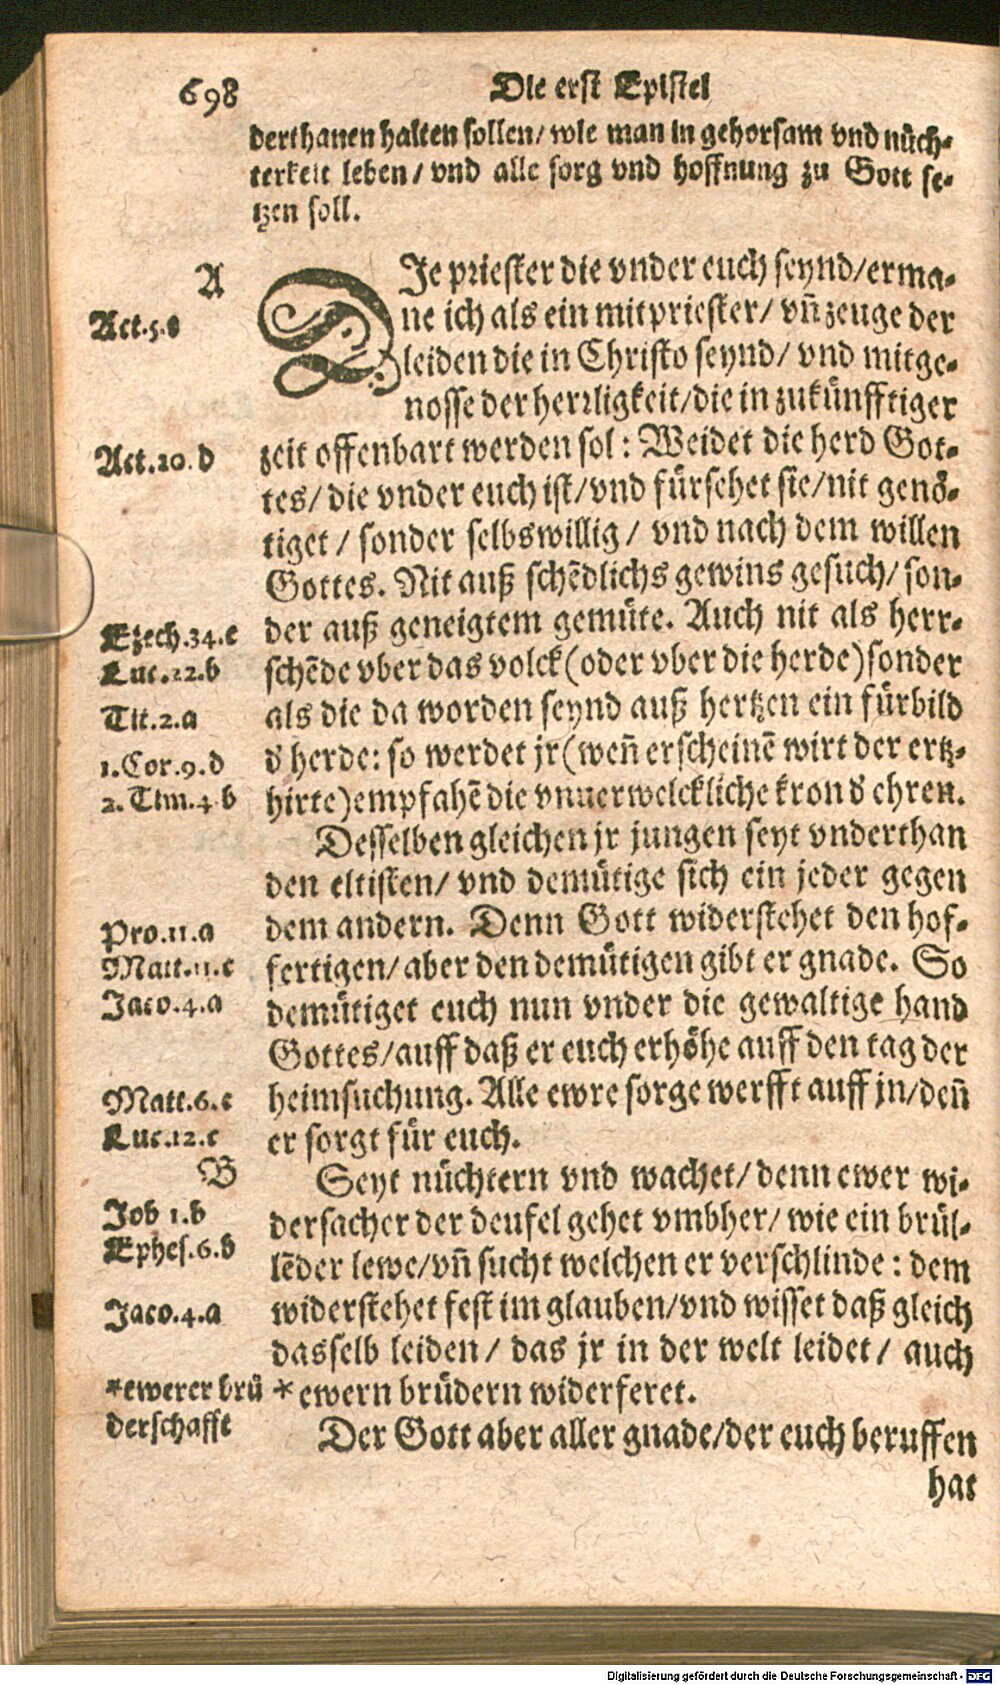 698
Die erst Epistel
derthanen halten sollen/ wie man in gehorsam vnd nüch-
terkeit leben/ vnd alle sorg vnd hoffnung zu Gott se-
tzen soll.
A
DIe priester die vnder euch seynd/erma-
Act.5.e
ne ich als ein mitpriester/ vn̄ zeuge der
leiden die in Christo seynd/ vnd mitge-
nosse der herrligkeit/die in zukünfftiger
Act.20.d
zeit offenbart werden sol: Weidet die herd Got-
tes/ die vnder euch ist/vnd fürsehet sie/nit genö-
tiget/ sonder selbswillig/ vnd nach dem willen
Gottes. Nit auß schēdlichs gewins gesuch/ son-
Ezech.34.c
der auß geneigtem gemüte. Auch nit als herr-
Luc.22.b
schēde vber das volck(oder vber die herde)sonder
Tit.2.a
als die da worden seynd auß hertzen ein fürbild
1.Cor.9.d
d̕ herde: so werdet jr(wen̄ erscheinē wirt der ertz-
2.Tim.4 b
hirte)empfahē die vnuerwelckliche kron d̕ ehren.
Desselben gleichen jr jungen seyt vnderthan
den eltisten/ vnd demütige sich ein jeder gegen
Pro.11.a
dem andern. Denn Gott widerstehet den hof-
Matt.11.c
fertigen/ aber den demütigen gibt er gnade. So
Jaco.4.a
demütiget euch nun vnder die gewaltige hand
Gottes/auff daß er euch erhöhe auff den tag der
Matt.6.c
heimsuchung. Alle ewre sorge werfft auff jn/den̄
Luc.12.c
er sorgt für euch.
B
Seyt nüchtern vnd wachet/ denn ewer wi-
Job 1.b
dersacher der deufel gehet vmbher/ wie ein brül-
Ephes.6.b
lēder lewe/vn̄ sucht welchen er verschlinde: dem
Jaco.4.a
widerstehet fest im glauben/vnd wisset daß gleich
dasselb leiden/ das jr in der welt leidet/ auch
*ewerer brü
derschafft
* ewern brüdern widerferet.
Der Gott aber aller gnade/der euch beruffen
hat
Digitalisierung gefördert durch die Deutsche Forschungsgemeinschaft - DFG